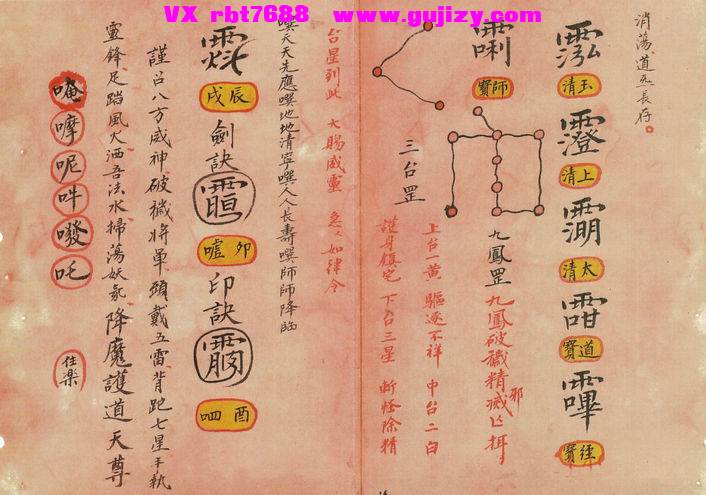 VX rbt7688 www.gujizy.com
消蕩道炁長存
玉清
上清
太清
道寶
經寶
師寶
九鳳罡 九鳳破穢精邪滅亡
三台罡
上台一黃 驅逐不祥 中台二白
護身鎮宅 下台三星 斷怪除精
台星到此 大賜威靈 急急如律令
噀天天先應噀地地清寧噀人人長壽噀師師降臨
辰戌
劍訣
卯嘘
印訣
酉呬
謹召八方威神破穢將軍頭戴五雷背跎七星手執
靈鋒足踏風火洒吾法水掃蕩妖氛降魔護道天尊
唵吽呢吽發吒
住樂